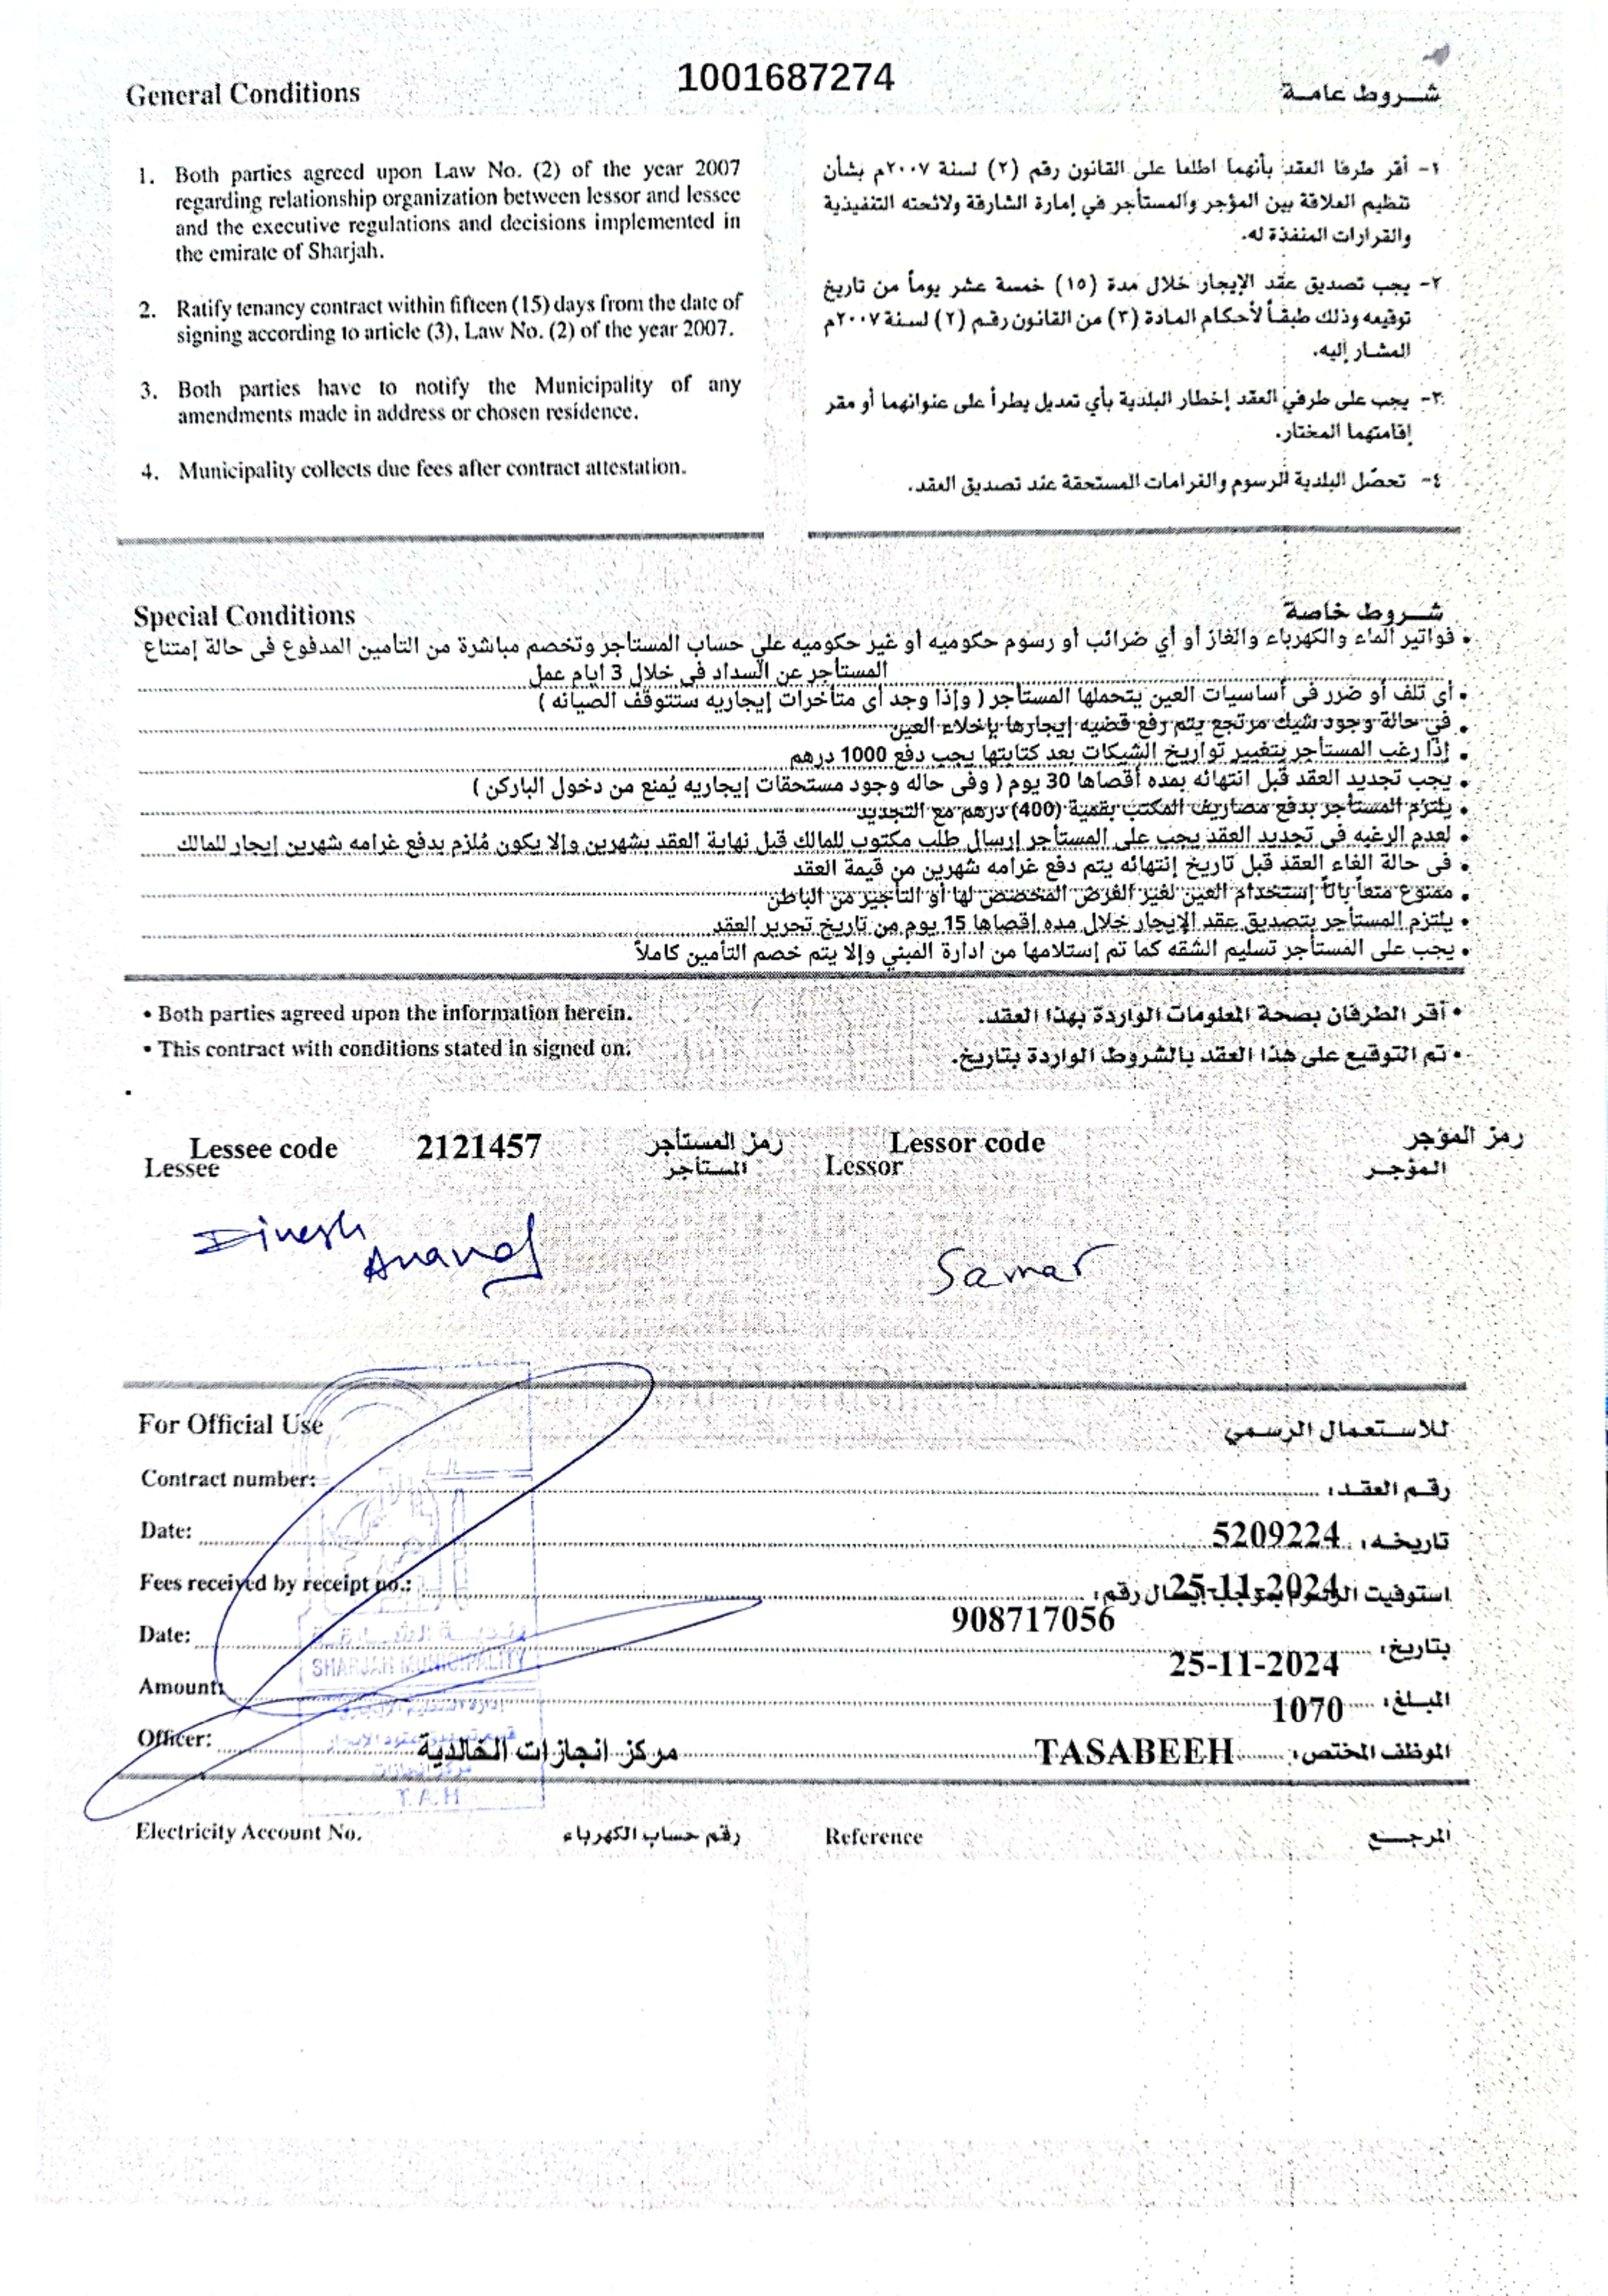 1001687274
General Conditions
شروط عامة
1. Both parties agreed upon Law No. (2) of the year 2007
regarding relationship organization between lessor and lessee
and the executive regulations and decisions implemented in
the emirate of Sharjah.
2. Ratify tenancy contract within fifteen (15) days from the date of
signing according to article (3), Law No. (2) of the year 2007.
3. Both parties have to notify the Municipality of any
amendments made in address or chosen residence.
4. Municipality collects due fees after contract attestation.
١- أقر طرفا العقد بأنهما اطلعا على القانون رقم (٢) لسنة ٢٠٠٧م بشأن
تنظيم العلاقة بين المؤجر والمستأجر في إمارة الشارقة ولائحته التنفيذية
والقرارات المنفذة له.
٢- يجب تصديق عقد الإيجار خلال مدة (١٥) خمسة عشر يوماً من تاريخ
توقيعه وذلك طبقاً لأحكام المادة (٣) من القانون رقم (٢) لسنة ٢٠٠٧م
المشار إليه.
٣- يجب على طرفي العقد إخطار البلدية بأي تعديل يطرأ على عنوانهما أو مقر
إقامتهما المختار.
٤- تحصّل البلدية الرسوم والغرامات المستحقة عند تصديق العقد.
Special Conditions
شروط خاصة
• فواتير الماء والكهرباء والغاز أو أي ضرائب أو رسوم حكوميه أو غير حكوميه علي حساب المستاجر وتخصم مباشرة من التأمين المدفوع فى حالة إمتناع
المستأجر عن السداد فى خلال 3 ايام عمل
• أى تلف أو ضرر فى أساسيات العين يتحملها المستأجر ( وإذا وجد أى متأخرات إيجاريه ستتوقف الصيانه )
• في حالة وجود شيك مرتجع يتم رفع قضيه إيجارها بإخلاء العين
• إذا رغب المستأجر بتغيير تواريخ الشيكات بعد كتابتها يجب دفع 1000 درهم
• يجب تجديد العقد قبل انتهائه بمده أقصاها 30 يوم ( وفى حاله وجود مستحقات إيجاريه يُمنع من دخول الباركن )
• يلتزم المستأجر بدفع مصاريف المكتب بقمية (400) درهم مع التجديد
• لعدم الرغبه فى تجديد العقد يجب على المستأجر إرسال طلب مكتوب للمالك قبل نهاية العقد بشهرين وإلا يكون مُلزم بدفع غرامه شهرين إيجار للمالك
• فى حالة الغاء العقد قبل تاريخ إنتهائه يتم دفع غرامه شهرين من قيمة العقد
• ممنوع منعاً باتاً إستخدام العين لغير الغرض المخصص لها أو التأجير من الباطن
• يلتزم المستأجر بتصديق عقد الإيجار خلال مده إقصاها 15 يوم من تاريخ تحرير العقد
• يجب على المستأجر تسليم الشقه كما تم إستلامها من ادارة المبني وإلا يتم خصم التأمين كاملاً
• Both parties agreed upon the information herein.
• أقر الطرفان بصحة المعلومات الواردة بهذا العقد.
• This contract with conditions stated in signed on:
• تم التوقيع على هذا العقد بالشروط الواردة بتاريخ.
Lessee code 2121457 رمز المستأجر Lessor code رمز المؤجر
Lessee المستأجر Lessor المؤجر
Dinesh
Anand
Samar
For Official Use
للاستعمال الرسمي
Contract number: رقم العقد:
Date: 5209224 تاريخه:
Fees received by receipt no.: 25-11-2024 استوفيت الرسوم بموجب إيصال رقم:
908717056
Date: بتاريخ:
25-11-2024
Amount: 1070 المبلغ:
Officer: مركز انجازات الخالدية TASABEEH الموظف المختص:
SHARJAH MUNICIPALITY
T.A.H
Electricity Account No. رقم حساب الكهرباء Reference المرجع